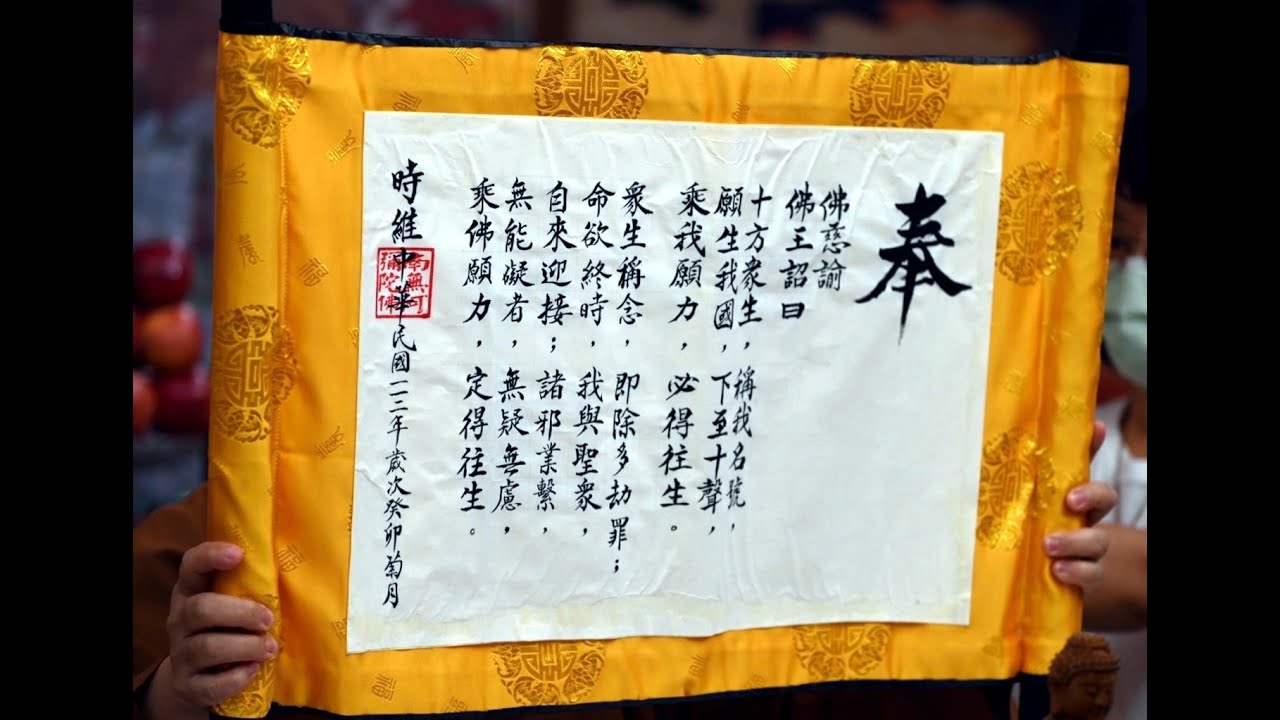 奉
佛慈諭
佛王詔曰
十方衆生，稱我名號，
願生我國，下至十聲，
乘我願力，必得往生。
衆生稱念，即除多劫罪；
命欲終時，我與聖衆，
自來迎接；諸邪業繫，
無能礙者，無疑無慮，
乘佛願力，定得往生。
時維中華民國一一二年歲次癸卯菊月
南無阿
彌陀佛